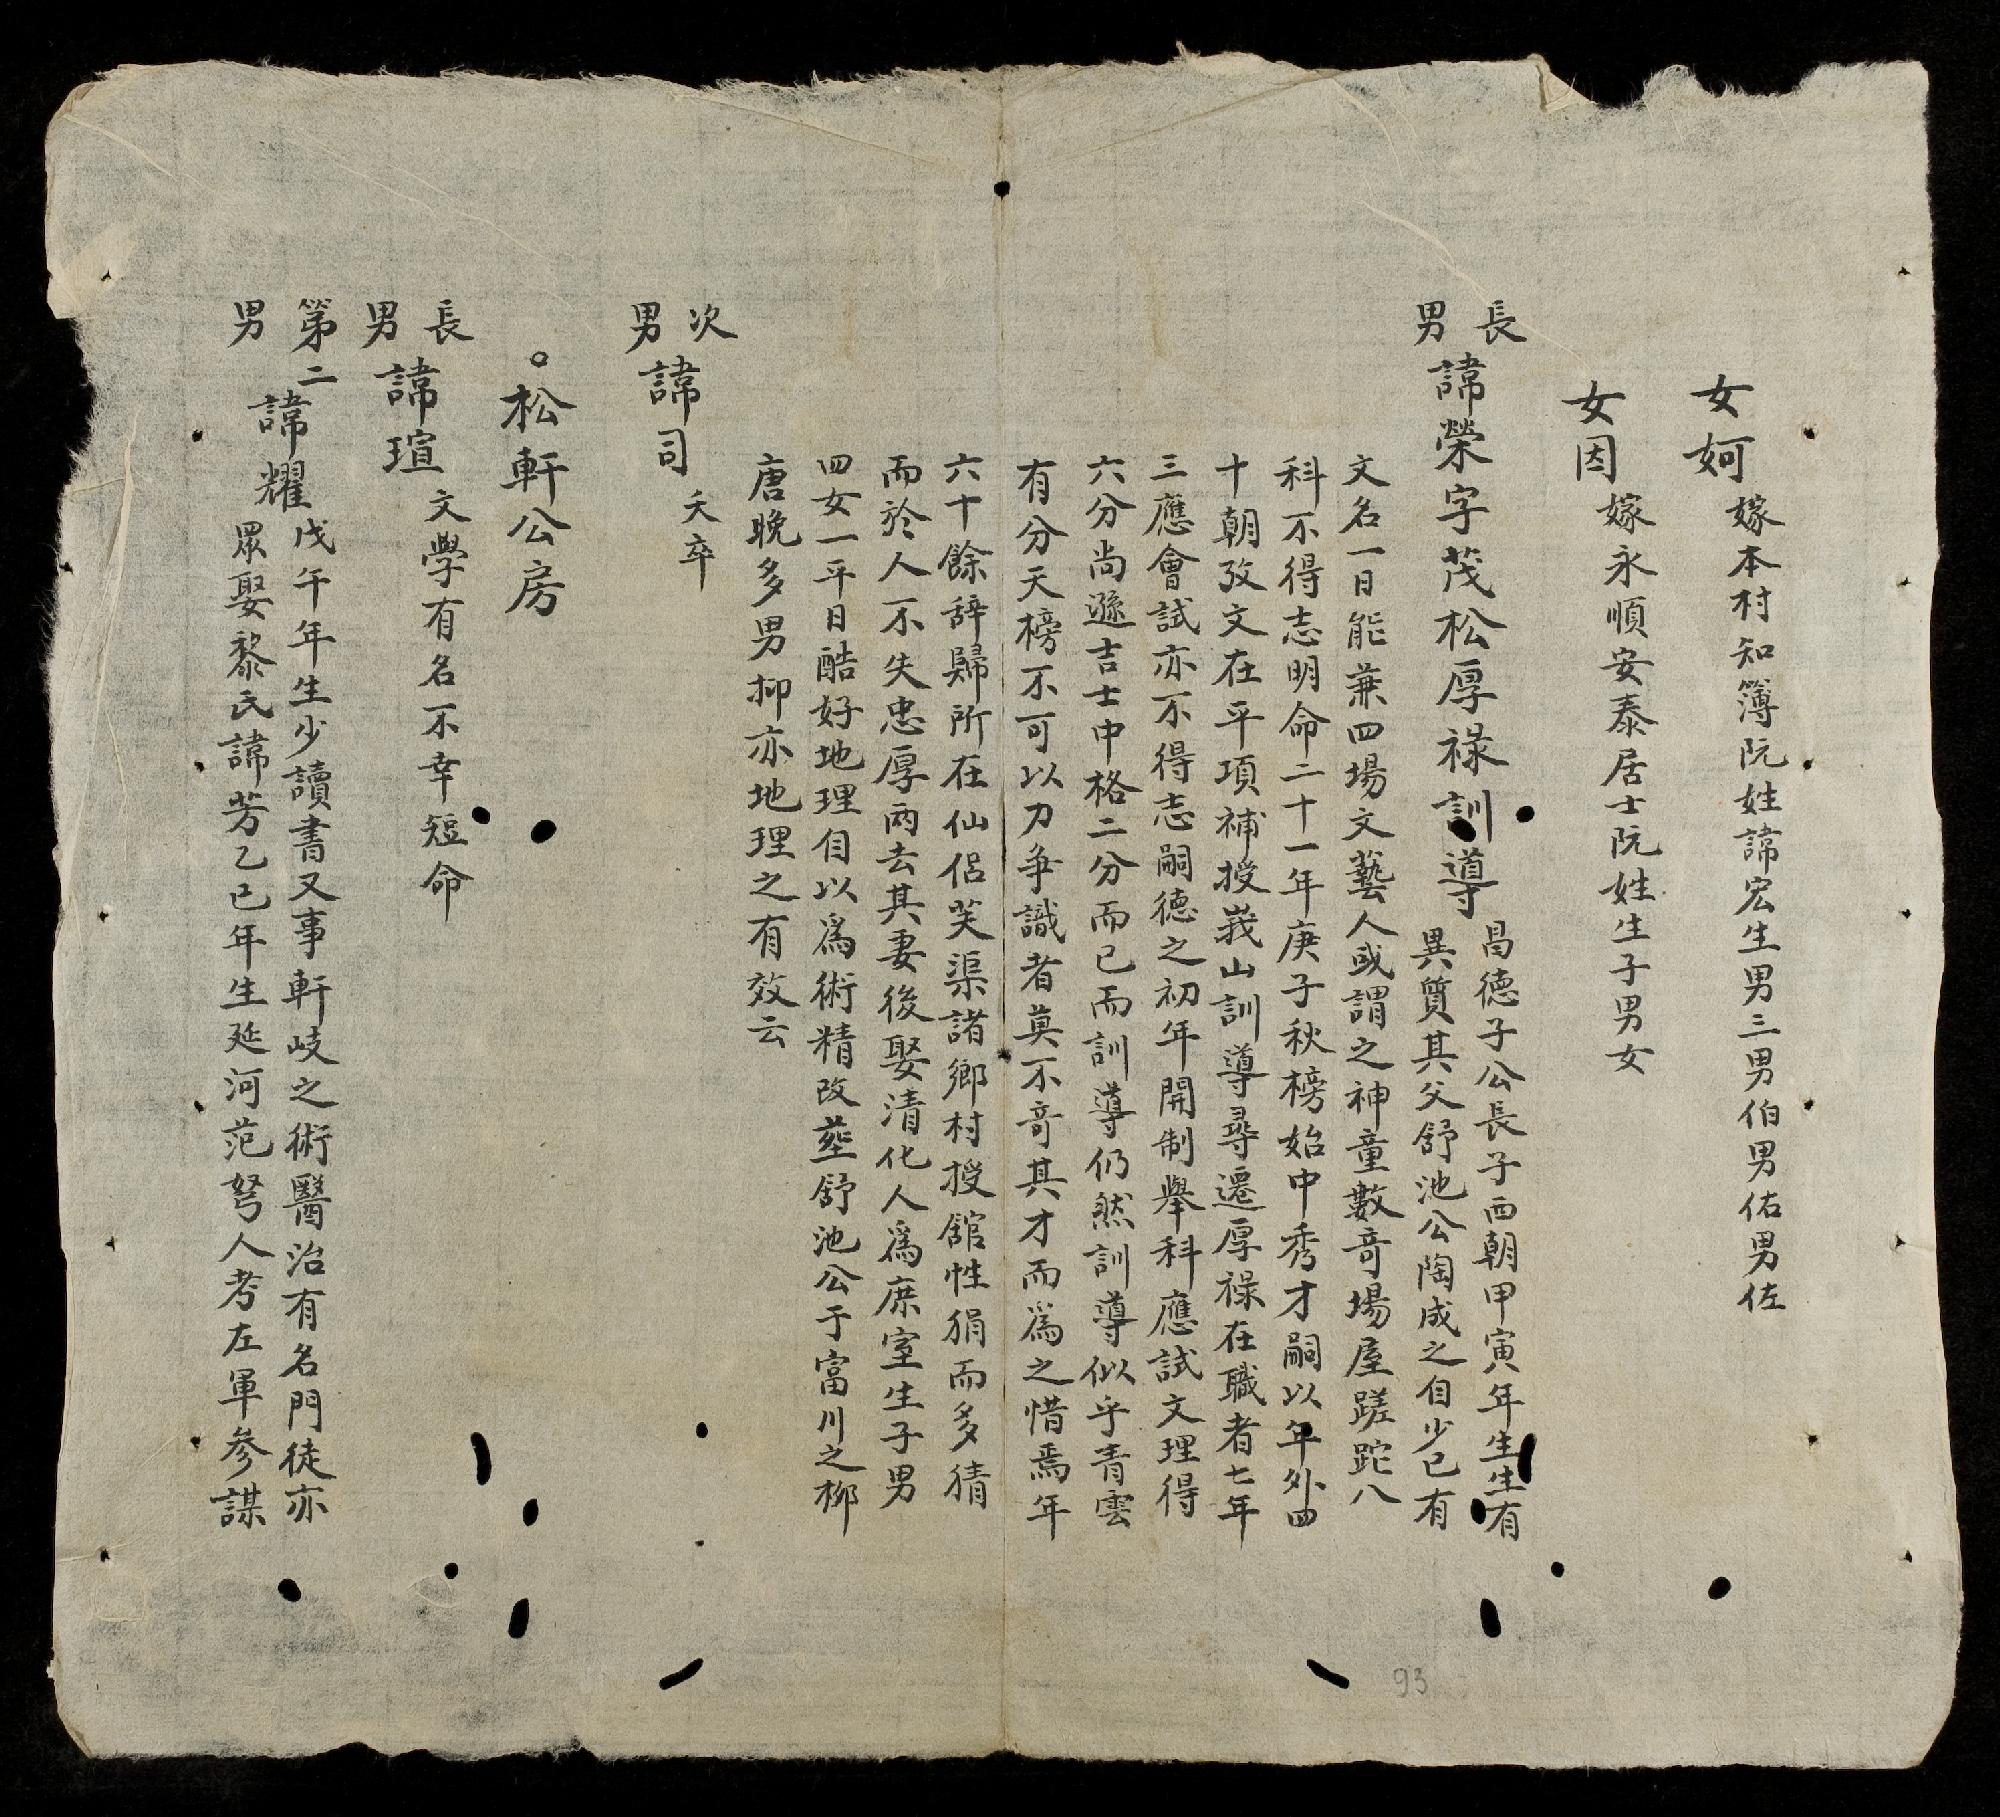 女妸嫁本村知簿阮姓諱宏生男三男伯男佑男佐
女因嫁永順安泰居士阮姓生子男女
長男諱榮字茂松厚祿訓導昌德子公長子西朝甲寅年生生有
異質其父舒池公陶成之自少已有
文名一日能兼四場文藝人或謂之神童數奇場屋蹉跎八
科不得志明命二十一年庚子秋榜始中秀才嗣以年外四
十朝攷文在平項補授峩山訓導尋遷厚祿在職者七年
三應會試亦不得志嗣德之初年開制舉科應試文理得
六分尚遜吉士中格二分而已而訓導仍然訓導似乎青雲
有分天榜不可以力爭識者莫不奇其才而爲之惜焉年
六十餘辞歸所在仙侶芙渠諸鄉村授舘性狷而多猜
而於人不失忠厚兩去其妻後娶清化人爲庶室生子男
四女一平日酷好地理自以爲術精改塟舒池公于富川之柳
唐晚多男抑亦地理之有效云
次男諱司夭卒
○松軒公房
長男諱瑄文學有名不幸短命
第二男諱耀戊午年生少讀書又事軒岐之術醫治有名門徒亦
眾娶黎氏諱芳乙巳年生延河范弩人考左軍參謀
93